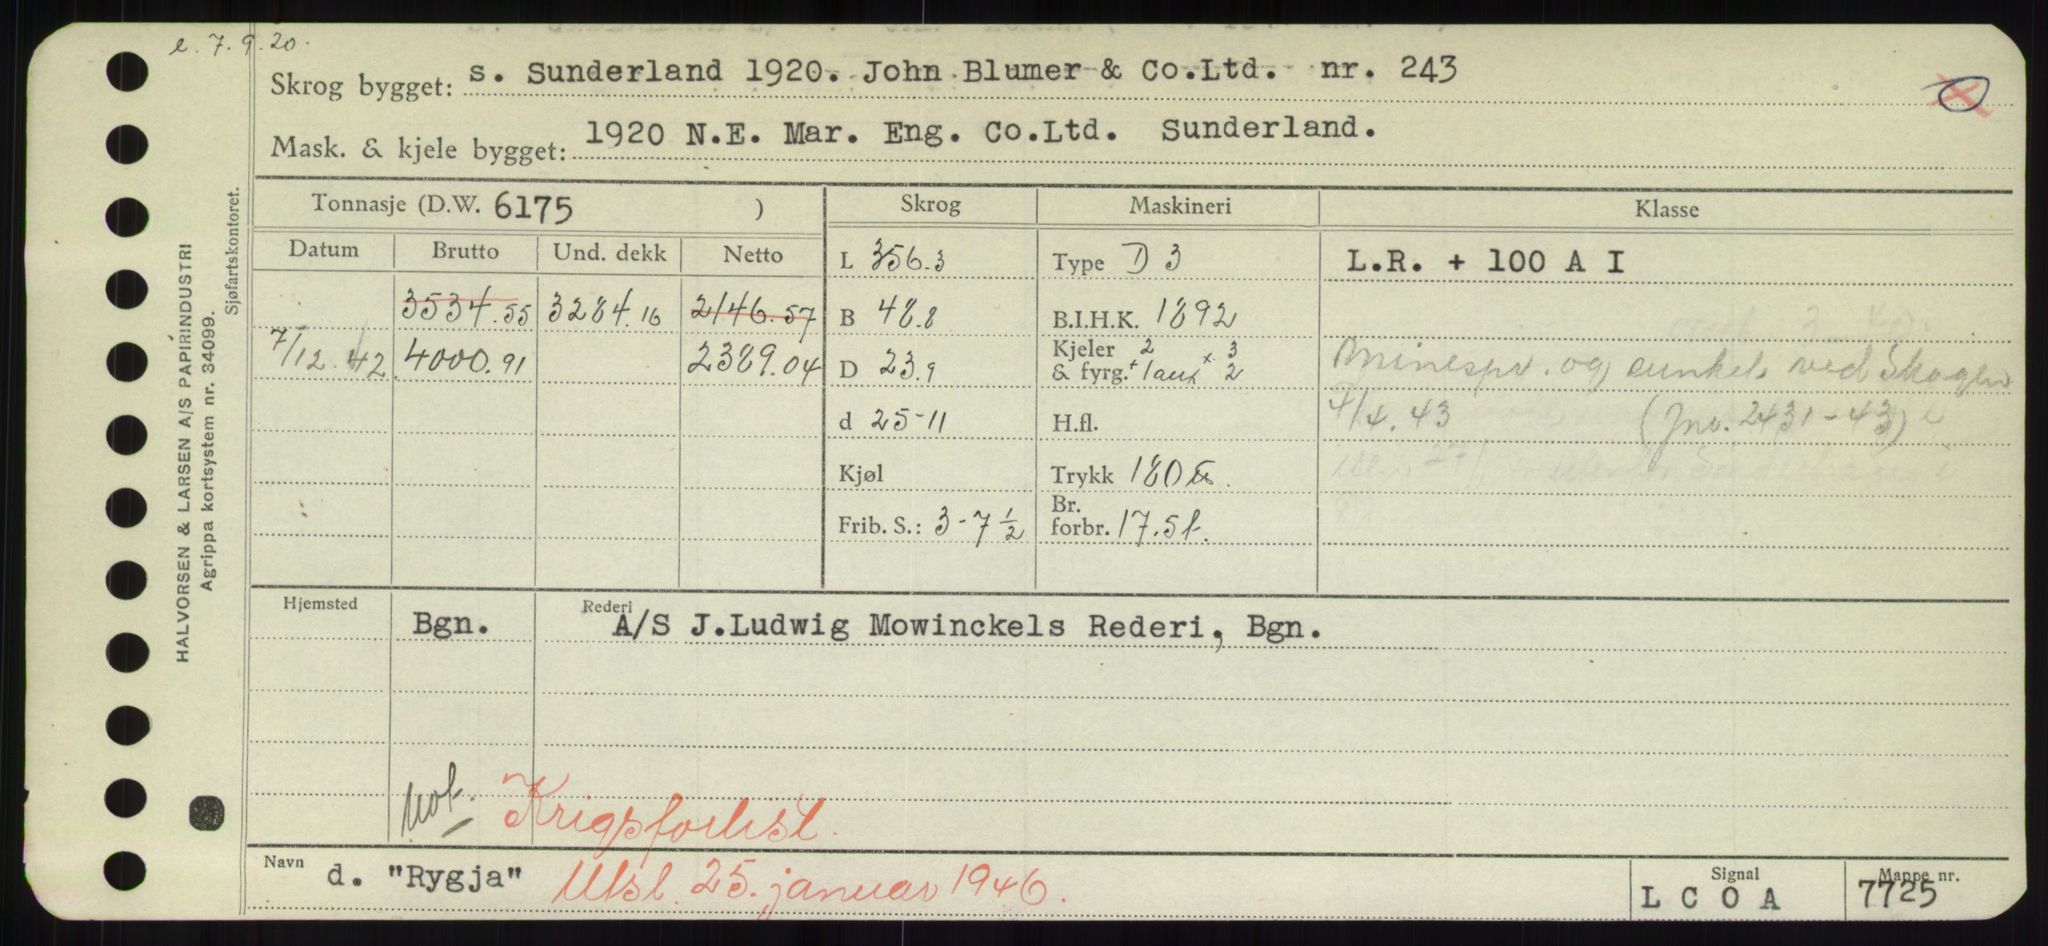 e. 7.9.20.
Skrog bygget: s. Sunderland 1920. John Blumer & Co.Ltd. nr. 243
Mask. & kjele bygget: 1920 N.E. Mar. Eng. Co.Ltd. Sunderland.
Tonnasje (D.W. 6175 ) Skrog Maskineri Klasse
Datum Brutto Und. dekk Netto L 356.3 Type D 3 L.R. + 100 A I
3534.55 3284.16 2146.57 B 48.8 B.I.H.K. 1892
7/12 42 4000.91 2389.04 D 23.9 Kjeler & fyrg. 2 + 1 aux x 3 2 Minespr. og sunket ved Skagen
d 25-11 H.fl. 4/4.43 (Jnr. 2431-43)
Kjøl Trykk 180 lbs.
Frib. S.: 3-7 1/2 Br. forbr. 17.5 t.
Hjemsted Bgn. Rederi A/S J.Ludwig Mowinckels Rederi, Bgn.
Not. Krigsforlist.
Navn d. "Rygja" Utsl. 25. januar 1946.
Signal L C O A Mappe nr. 7725
HALVORSEN & LARSEN A/S PAPIRINDUSTRI
Agrippa kortsystem nr. 34099.
Sjøfartskontoret.